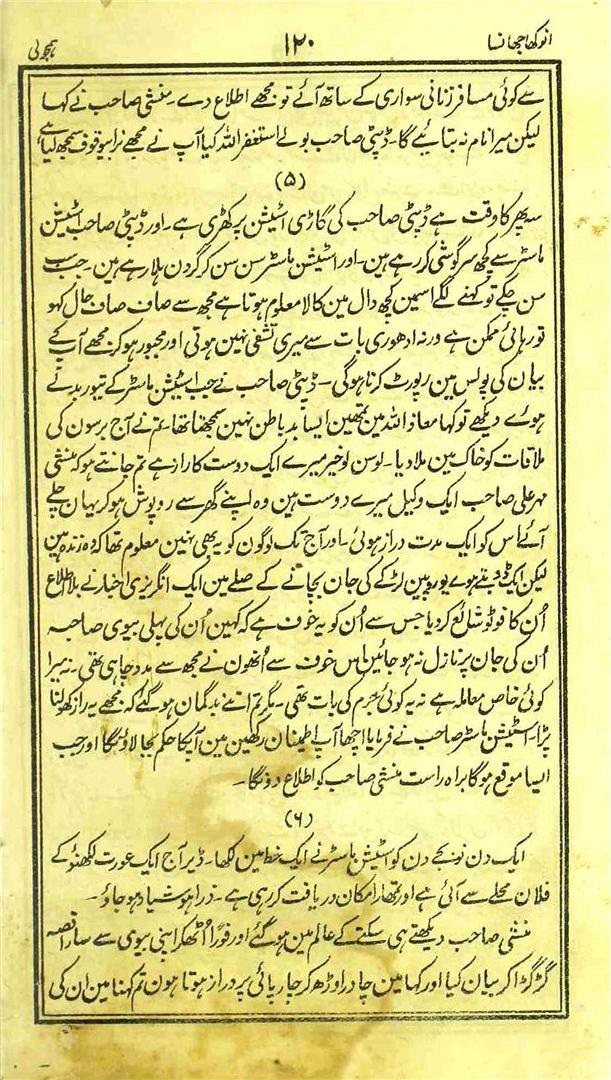 انوکھا جھانسا ۱۲۰ ہمجولی
سے کوئی مسافر زنانی سواری کے ساتھ آئے تو مجھے اطلاع دے ۔ منشی صاحب نے کہا
لیکن میرا نام نہ بتائیے گا۔ ڈپٹی صاحب بولے استغفر اللہ کیا آپ نے مجھے نرا بیوقوف سمجھ لیا ہے
(۵)
سہ پہر کا وقت ہے ڈپٹی صاحب کی گاڑی اسٹیشن پر کھڑی ہے ۔ اور ڈپٹی صاحب اسٹیشن
ماسٹر سے کچھ سرگوشی کر رہے ہین ۔ اور اسٹیشن ماسٹر سن سن کر گردن ہلا رہے ہین ۔ جب سب
سن چکے تو کہنے لگے اسمین کچھ دال مین کالا معلوم ہوتا ہے مجھ سے صاف صاف حال کہو
تو رہائی ممکن ہے ورنہ ادھوری بات سے میری تشفی نہین ہوتی اور مجبور ہو کر مجھے آپ کے
بیان کی پولس مین رپورٹ کرنا ہوگی ۔ ڈپٹی صاحب نے جب اسٹیشن ماسٹر کے تیور بدلے
ہوے دیکھے تو کہا معاذ اللہ مین تمھین ایسا بد باطن نہین سمجھتا تھا ۔ تم نے آج برسون کی
ملاقات کو خاک مین ملا دیا ۔ لو سن لو خیر میرے ایک دوست کا راز ہے تم جانتے ہو کہ منشی
مہر علی صاحب ایک وکیل میرے دوست ہین وہ اپنے گھر سے روپوش ہو کر یہان چلے
آئے اس کو ایک مدت دراز ہوئی ۔ اور آج تک لوگون کو یہ بھی نہین معلوم تھا کہ وہ زندہ ہین
لیکن ایک ڈوبتے ہوے یوروپین لڑکے کی جان بچانے کے صلے مین ایک انگریزی اخبار نے بلا اطلاع
اُن کا فوٹو شائع کر دیا جس سے اُن کو یہ خوف ہے کہ کہین اُن کی پہلی بیوی صاحبہ
اُن کی جان پر نازل نہ ہو جائین اس خوف سے اُنھون نے مجھ سے مدد چاہی تھی ۔ نہ میرا
کوئی خاص معاملہ ہے نہ یہ کوئی جرم کی بات تھی ۔ مگر تم اتنے بدگمان ہو گئے کہ مجھے یہ راز کھولنا
پڑا ۔ اسٹیشن ماسٹر صاحب نے فرمایا اچھا آپ اطمینان رکھین مین آپکا حکم بجا لاؤنگا اور جب
ایسا موقع ہوگا براہ راست منشی صاحب کو اطلاع دونگا ۔
(۶)
ایک دن نو بجے دن کو اسٹیشن ماسٹر نے ایک خط مین لکھا ۔ ڈیر آج ایک عورت لکھنؤ کے
فلان محلے سے آئی ہے اور تمھارا مکان دریافت کر رہی ہے ۔ ذرا ہوشیار ہو جاؤ ۔
منشی صاحب دیکھتے ہی سکتے کے عالم مین ہو گئے اور فوراً اُٹھکر اپنی بیوی سے سارا قصہ
گڑگڑا کر بیان کیا اور کہا مین چادر اوڑھ کر چارپائی پر دراز ہوتا ہون تم کہنا مین ان کی